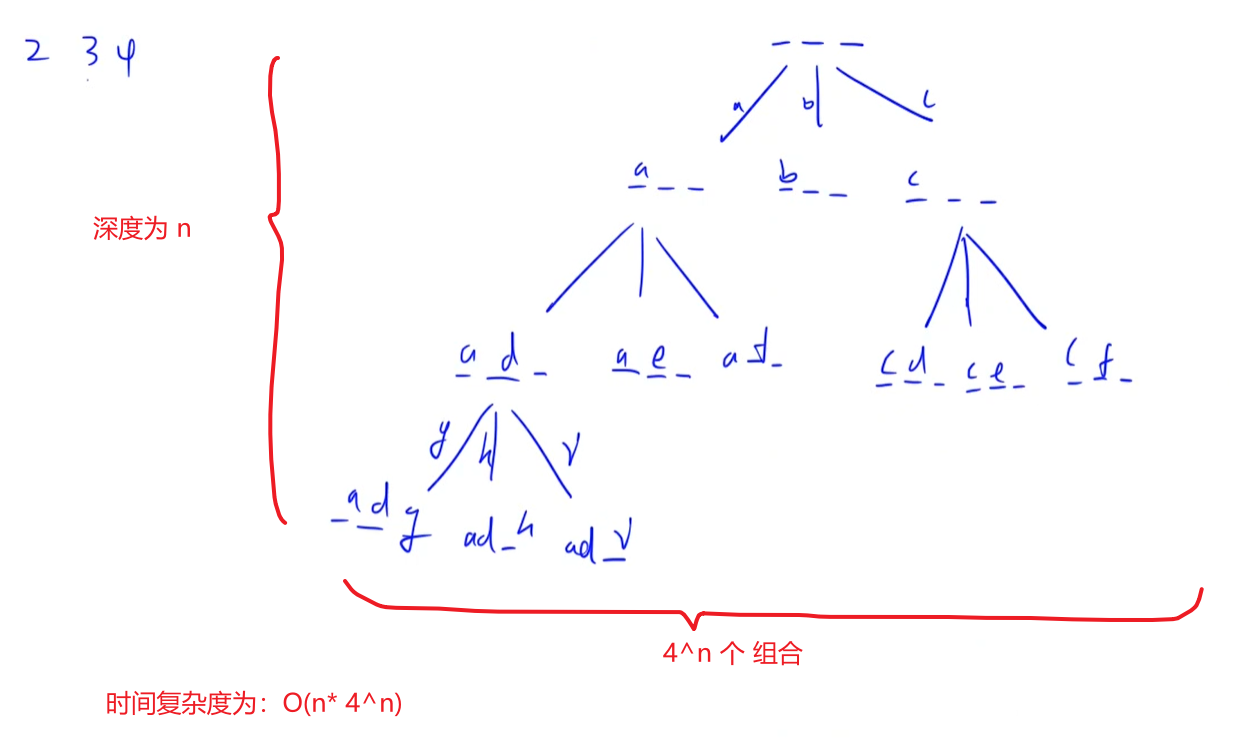 2 3 4
_ _ _
a b c
a _ _ b _ _ c _ _
深度为 n
a d _ a e _ a f _ c d _ c e _ c f _
g h
a d g ad_h ad
4^n 个 组合
时间复杂度为：O(n* 4^n)